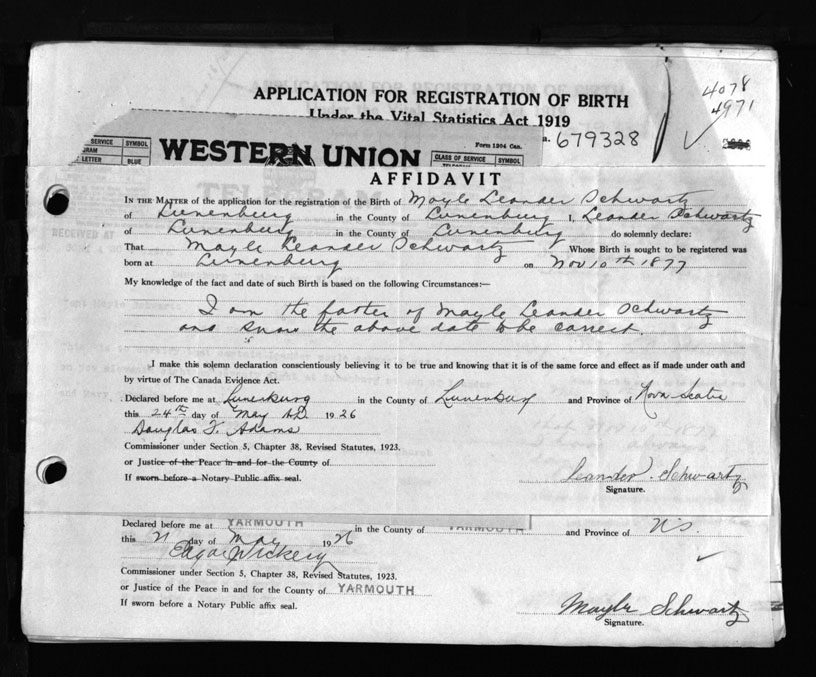 APPLICATION FOR REGISTRATION OF BIRTH
Under the Vital Statistics Act 1919
4078
4971
Form 1204 Can.
a. 679328
SERVICE SYMBOL
LETTER BLUE
WESTERN UNION
CLASS OF SERVICE SYMBOL
AFFIDAVIT
IN THE MATTER of the application for the registration of the Birth of Mayle Leander Schwartz
of Lunenburg in the County of Lunenburg I, Leander Schwartz
of Lunenburg in the County of Lunenburg do solemnly declare:
That Mayle Leander Schwartz Whose Birth is sought to be registered was
born at Lunenburg on Nov 10th 1877
My knowledge of the fact and date of such Birth is based on the following Circumstances:—
I am the father of Mayle Leander Schwartz
and know the above date to be correct.
I make this solemn declaration conscientiously believing it to be true and knowing that it is of the same force and effect as if made under oath and
by virtue of The Canada Evidence Act.
Declared before me at Lunenburg in the County of Lunenburg and Province of Nova Scotia
this 24th day of May AD 1926
Douglas F. Adams
Commissioner under Section 5, Chapter 38, Revised Statutes, 1923.
or Justice of the Peace in and for the County of
If sworn before a Notary Public affix seal.
Leander Schwartz
Signature.
Declared before me at YARMOUTH in the County of YARMOUTH and Province of N.S.
this 21 day of May 1926
Commissioner under Section 5, Chapter 38, Revised Statutes, 1923.
or Justice of the Peace in and for the County of YARMOUTH
If sworn before a Notary Public affix seal.
Mayle Schwartz
Signature.